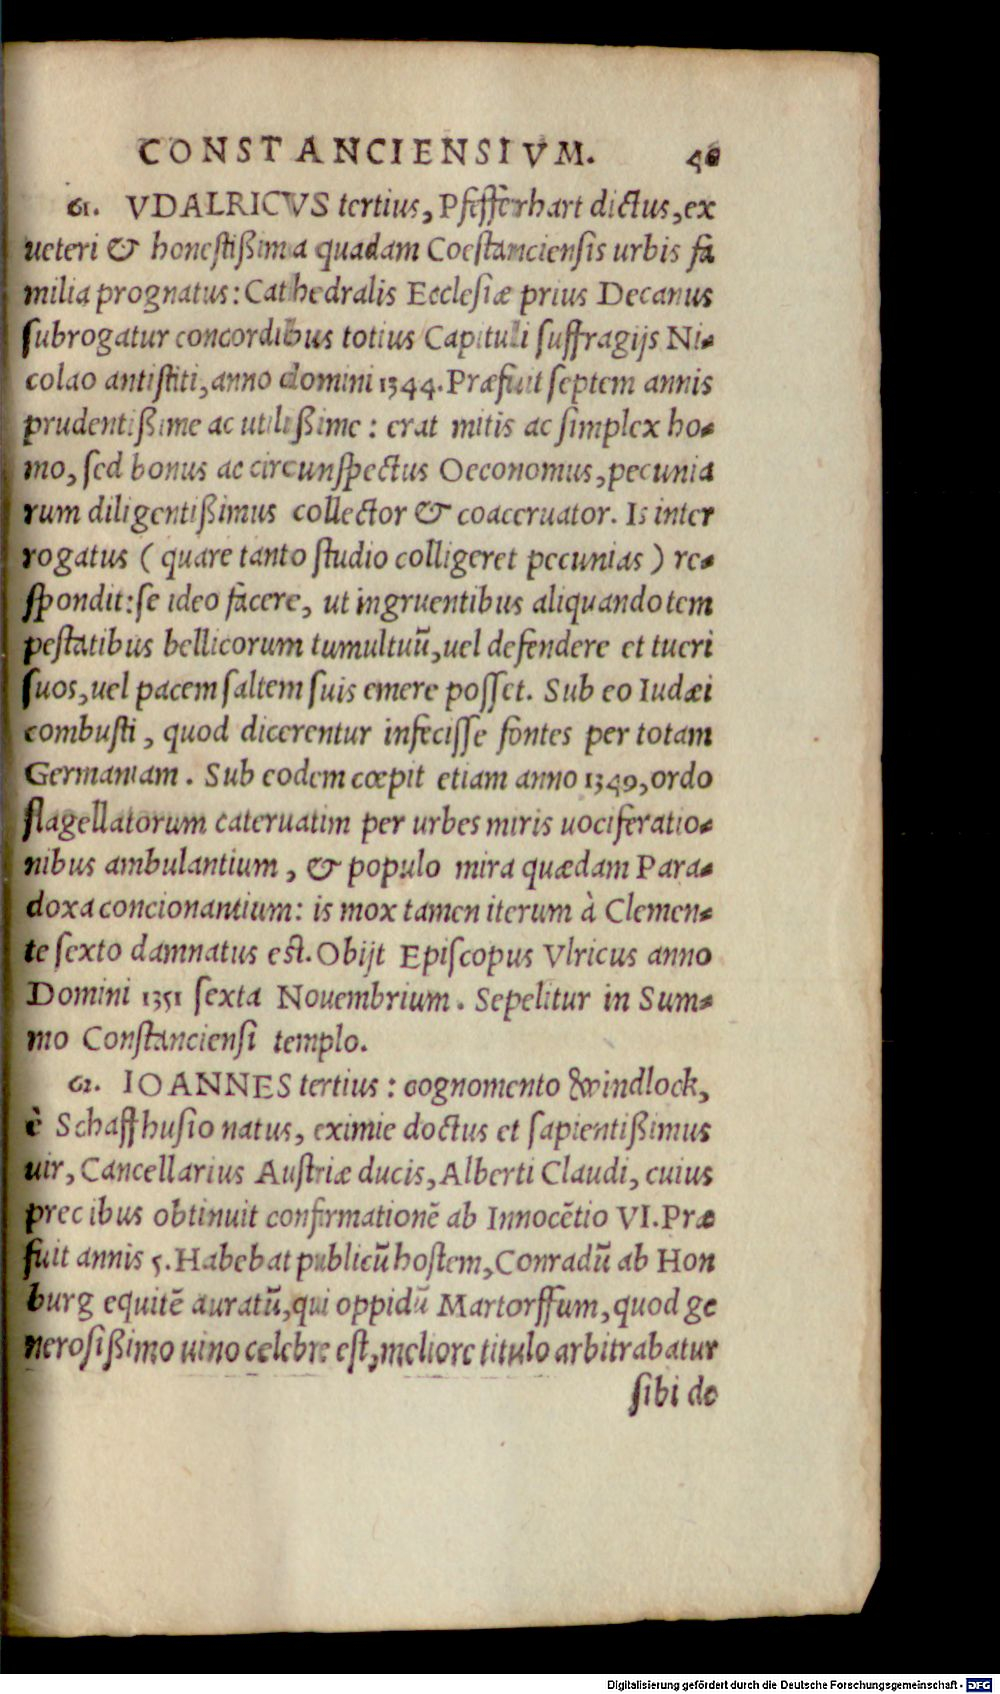 CONSTANCIENSIVM. 40
61. VDALRICVS tertius, Pfefferhart dictus, ex
ueteri & honestißima quadam Coestanciensis urbis fa
milia prognatus: Cathedralis Ecclesiæ prius Decanus
subrogatur concordibus totius Capituli suffragijs Ni-
colao antistiti, anno domini 1344. Præfuit septem annis
prudentißime ac utilißime: erat mitis ac simplex ho-
mo, sed bonus ac circunspectus Oeconomus, pecunia
rum diligentißimus collector & coaceruator. Is inter
rogatus (quare tanto studio colligeret pecunias) re-
spondit: se ideo facere, ut ingruentibus aliquando tem
pestatibus bellicorum tumultuũ, uel defendere et tueri
suos, uel pacem saltem suis emere posset. Sub eo Iudæi
combusti, quod dicerentur infecisse fontes per totam
Germaniam. Sub eodem cœpit etiam anno 1349, ordo
flagellatorum cateruatim per urbes miris uociferatio-
nibus ambulantium, & populo mira quædam Para-
doxa concionantium: is mox tamen iterum à Clemen-
te sexto damnatus est. Obijt Episcopus Vlricus anno
Domini 1351 sexta Nouembrium. Sepelitur in Sum-
mo Constanciensi templo.
62. IOANNES tertius: cognomento Windlock,
è Schaffhusio natus, eximie doctus et sapientißimus
uir, Cancellarius Austriæ ducis, Alberti Claudi, cuius
precibus obtinuit confirmationẽ ab Innocẽtio VI. Præ
fuit annis 5. Habebat publicũ hostem, Conradũ ab Hon
burg equitẽ auratũ, qui oppidũ Martorffum, quod ge
nerosißimo uino celebre est, meliore titulo arbitrabatur
sibi de
Digitalisierung gefördert durch die Deutsche Forschungsgemeinschaft - DFG